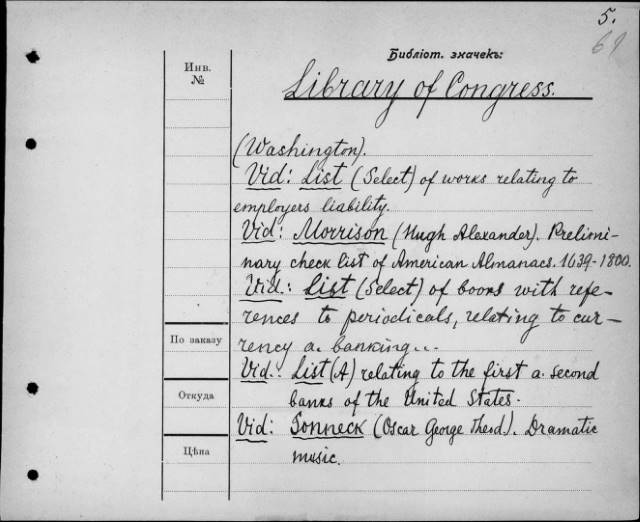 5.
69
Библіот. значекъ:
Инв.
№
Library of Congress.
(Washington).
Vid: List (Select) of works relating to
employers liability.
Vid: Morrison (Hugh Alexander). Prelimi-
nary check list of American Almanacs. 1639-1800.
Vid.: List (Select) of books with refe-
rences to periodicals, relating to cur-
По заказу
rency a. banking...
Vid.: List (A) relating to the first a. second
Откуда
banks of the United States.
Vid: Sonneck (Oscar George Theod.). Dramatic
Цѣна
music.